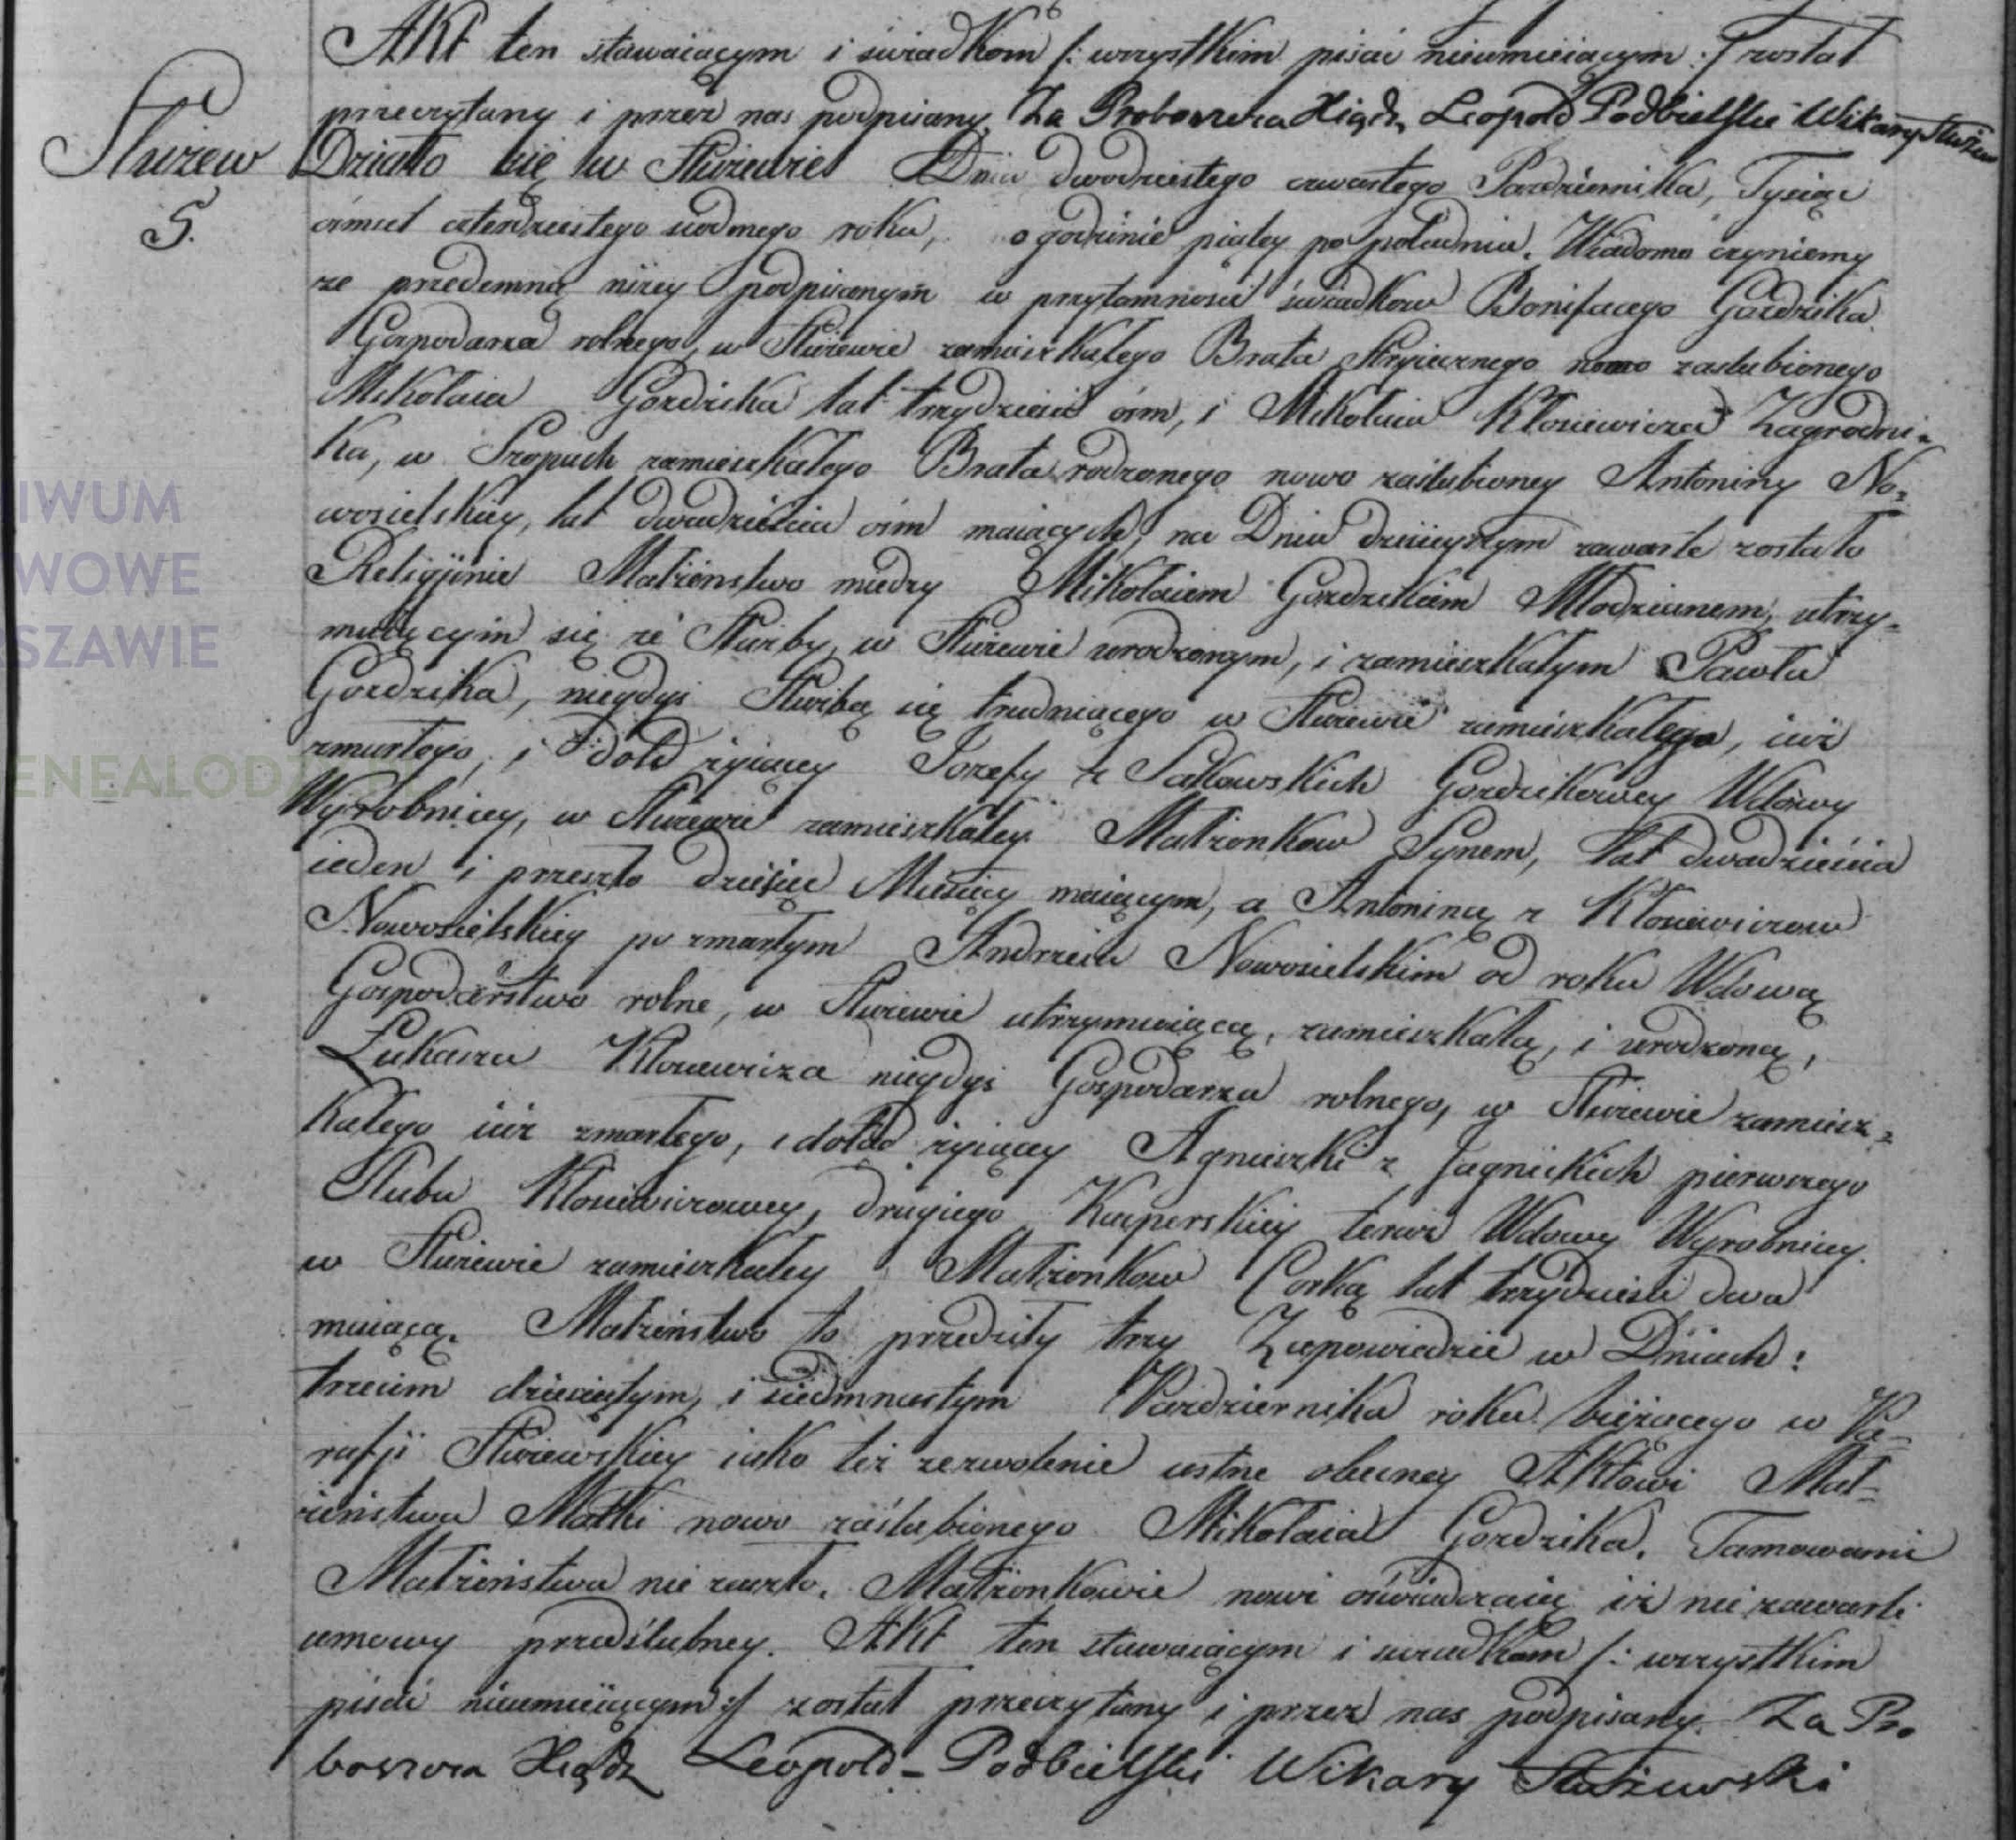 Akt ten stawaiącym i swiadkom /: wszystkim pisać nieumieiącym :/ został
przeczytany i przez nas podpisany. Za Proboszcza Xiądz Leopold Podbielski Wikary Służew
Służew
5.
Działo się w Służewie Dnia dwodziestego czwartego Pazdziernika, Tysiąc
ośmset czterdziestego siodmego roku, o godzinie piątey po południu. Wiadomo czyniemy
ze przedemną niżey podpisanym w przytomności świadkow Bonifacego Gozdzika
Gospodarza rolnego, w Służewie zamieszkałego Brata Stryiecznego nowo zaslubionego
Mikołaia Gozdzika lat trzydzieści ośm, i Mikołaia Kłosiewicza Zagrodni=
ka, w Szopach zamieszkałego Brata rodzonego nowo zaślubioney Antoniny No=
wosielskiey, lat dwadzieścia ośm maiących, na Dniu dzisieyszym zawarte zostało
Religijnie Małżeństwo między Mikołaiem Gozdzikiem Młodzianem, utrzy=
muiącym się ze Służby, w Służewie urodzonym, i zamieszkałym Pawła
Gozdzika, niegdyś Służbą się trudniącego w Służewie zamieszkałego, iuż
zmarłego, i dotąd żyiącey Jozefy z Sakowskich Gozdzikowey Wdowy
Wyrobnicy, w Służewie zamieszkałey Małżonkow Synem, lat dwadzieścia
ieden i przeszło dziesięć Miesięcy maiącym, a Antoniną z Kłosiewiczow
Nowosielskiey po zmarłym Andrzeiu Nowosielskim od roku Wdową
Gospodarstwo rolne, w Służewie utrzymuiącą, zamieszkałą, i urodzoną,
Łukasza Kłosiewicza niegdyś Gospodarza rolnego, w Służewie zamiesz=
kałego iuż zmarłego, i dotąd żyiącey Agnieszki z Jagnickich pierwszego
Slubu Kłosiewiczowey, drugiego Kacperskiey teraz Wdowy Wyrobnicy.
w Służewie zamieszkałey Małżonkow Corką lat trzydzieści dwa
maiącą. Małżeństwo to przedziły trzy Zapowiedzie w Dniach:
trzecim dziesiątym, i siedmnastym Pazdziernika roku bieżącego w Pa=
rafji Służewskiey iako też zezwolenie ustne obecney Aktowi Mał=
żeństwa Matki nowo zaślubionego Mikołaia Gozdzika. Tamowanie
Małżeństwa nie zaszło. Małżonkowie nowi oświadczaią iż nie zawarli
umowy przedślubney. Akt ten stawaiącym i swiadkom /: wszystkim
pisać nieumieiącym :/ został przeczytany i przez nas podpisany. Za Pro
boszcza Xiądz Leopold Podbielski Wikary Służewski
IWUM
WOWE
RSZAWIE
ENEALODZ